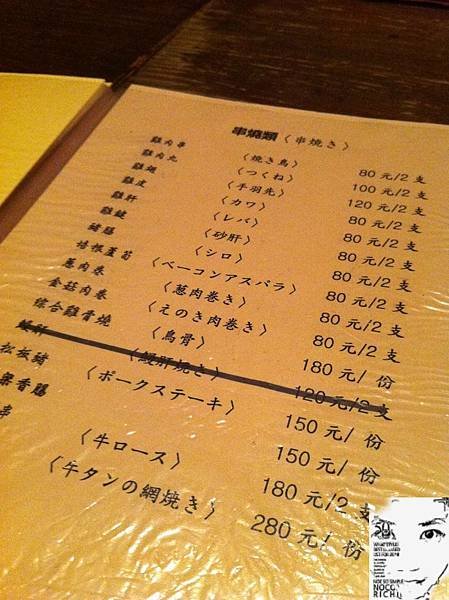 串燒類〈串焼き〉
雞肉串〈焼き鳥〉80元/2支
雞肉丸〈つくね〉100元/2支
雞翅〈手羽先〉120元/2支
雞皮〈カワ〉80元/2支
雞肝〈レバ〉80元/2支
雞腱〈砂肝〉80元/2支
豬腸〈シロ〉80元/2支
培根蘆筍〈ベーコンアスパラ〉80元/2支
蔥肉卷〈葱肉巻き〉80元/2支
金菇肉卷〈えのき肉巻き〉80元/2支
綜合雞骨燒〈鳥骨〉180元/份
鰻肝〈鰻肝焼き〉120元/2支
松板豬〈ポークステーキ〉150元/份
香腸 150元/份
串〈牛ロース〉180元/2支
〈牛タンの網焼き〉280元/份
NOCO
RICHI